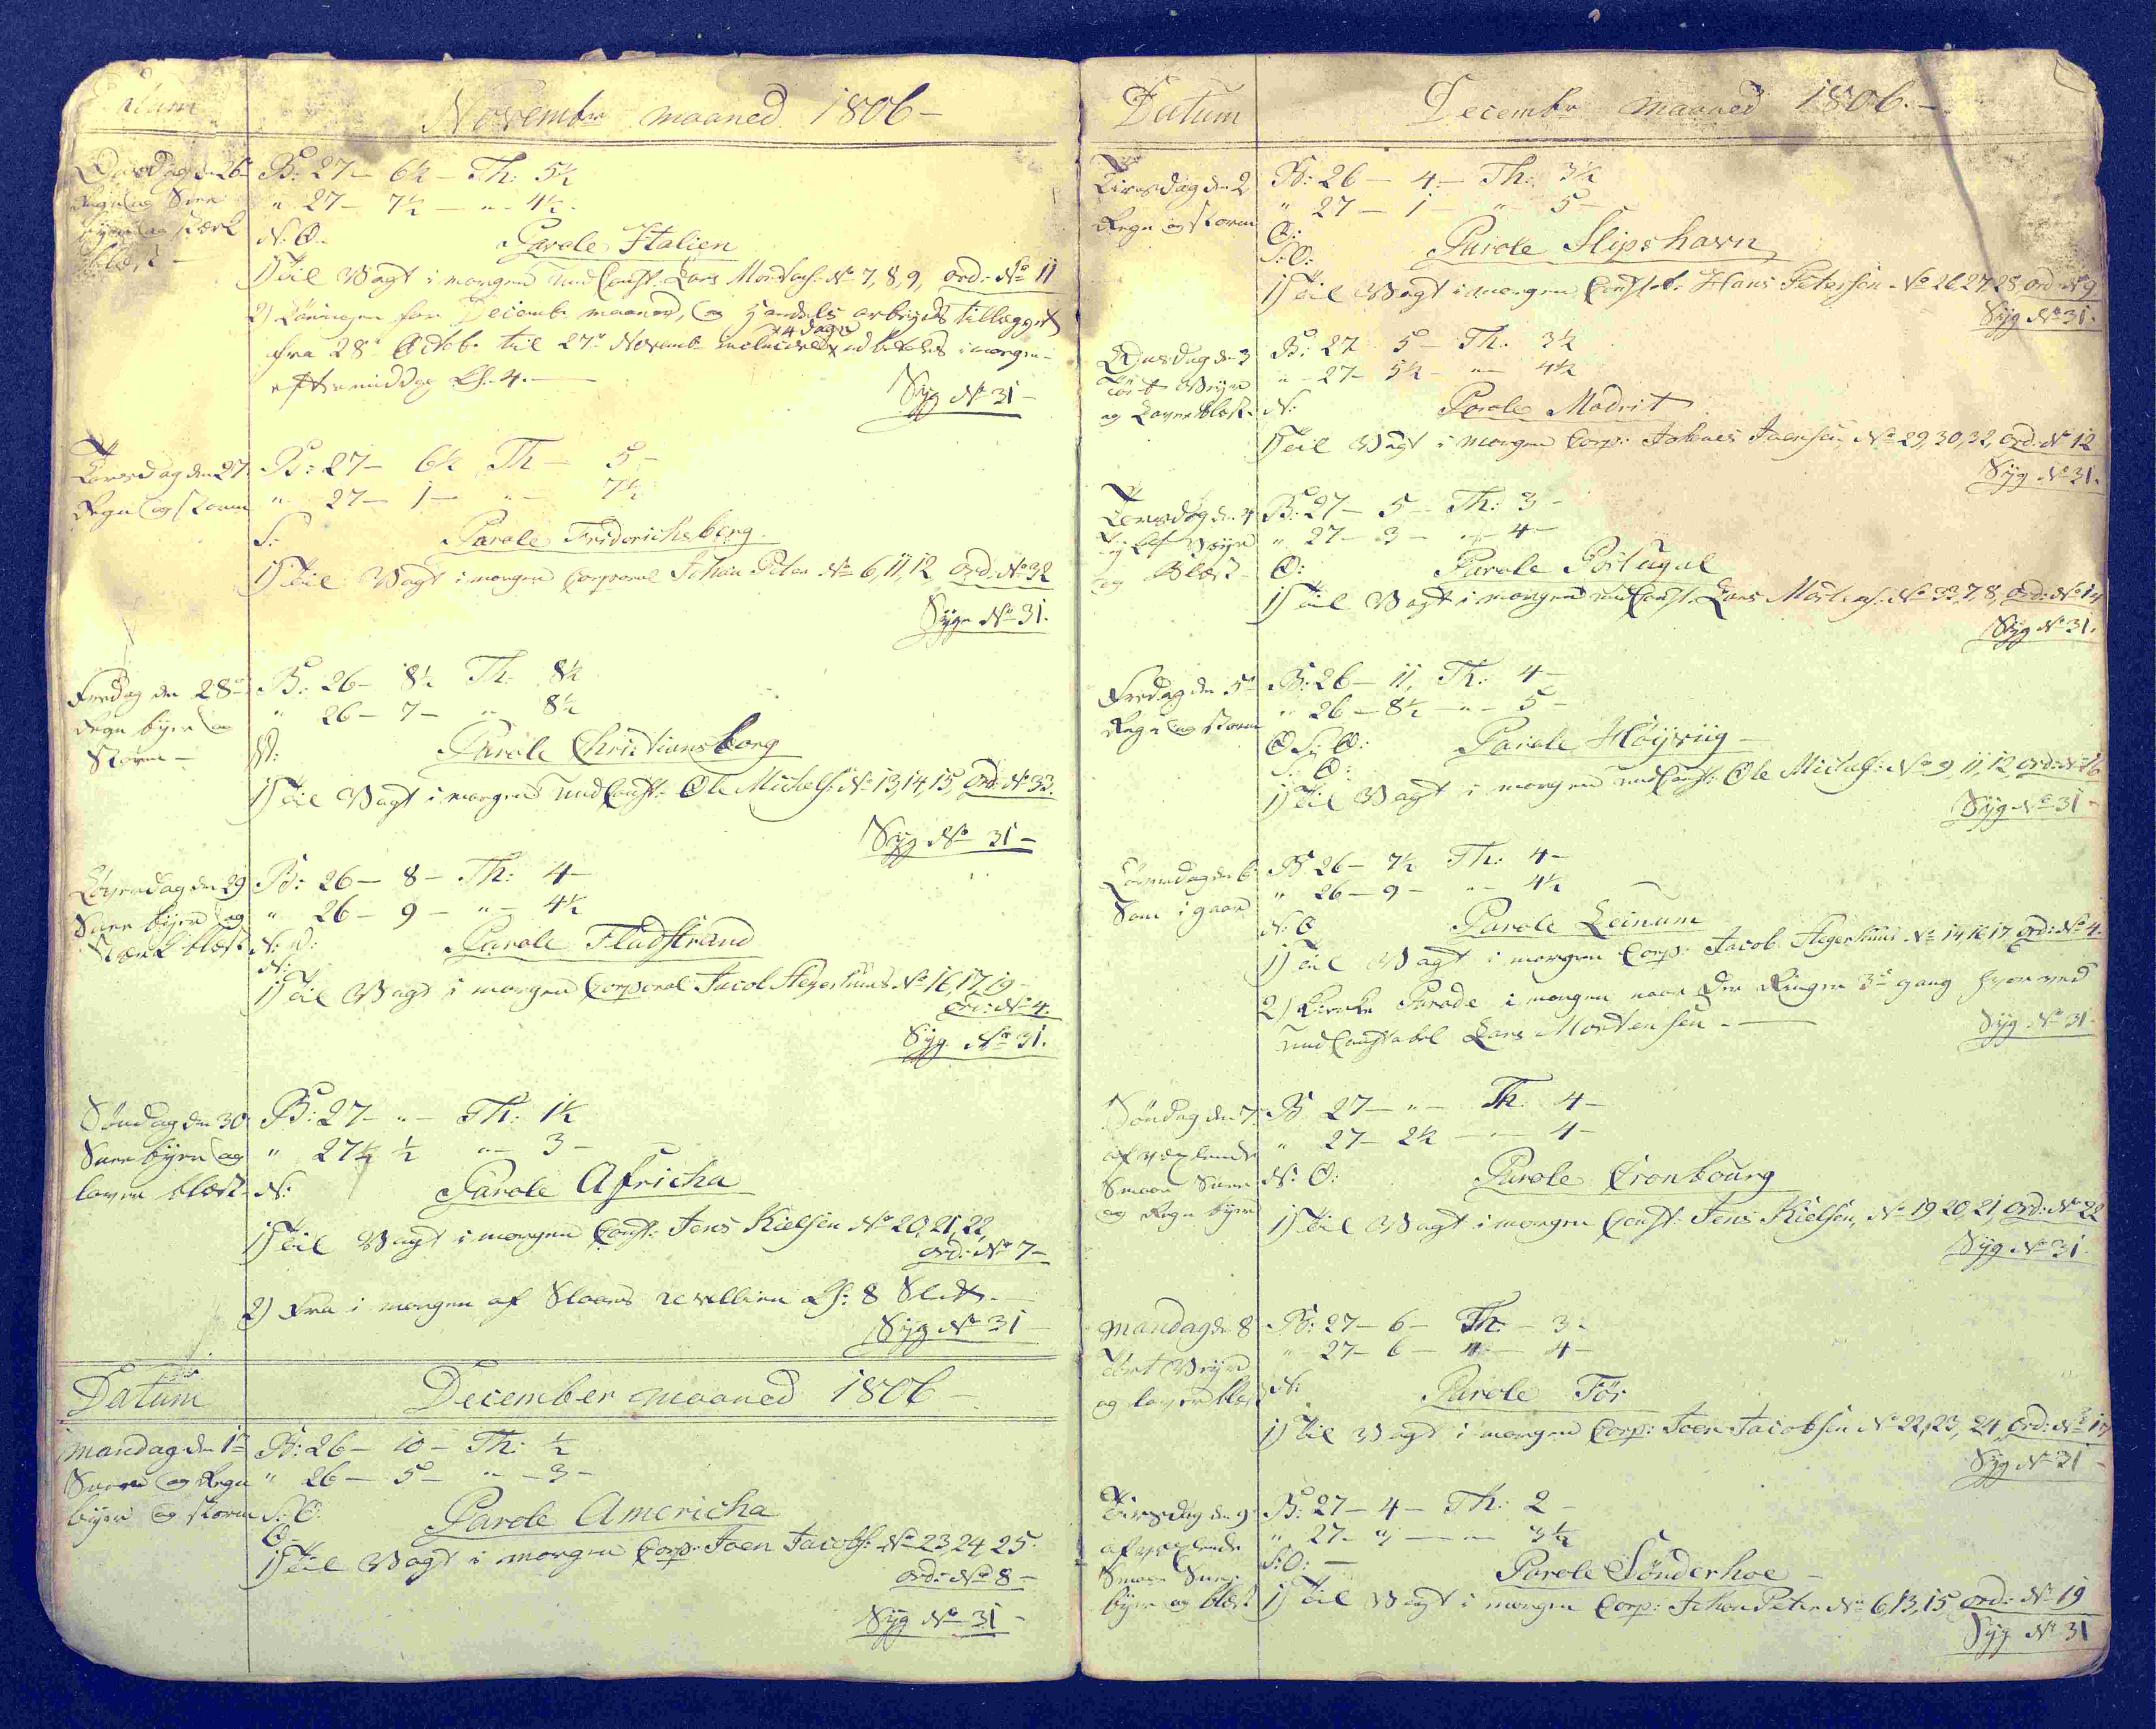 Datum
Novembr maaned 1806 –
Onsdag den 26
Regn og Snee
byer og stærk
blæst –
B: 27 – 6½ – Th: 5½
" 27 – 7½ – " – 4½ –
N: O –
Parole Italien
1) Til Vagt i morgen UndConst. Lars Mortens: No 7, 8, 9, ord: No 11
2) Lønningen for Decembr maaned, og Handels arbeyds tillægget
14 dage
fra 28de Octob. til 27de Novemb. inclusive udbetales i morgen
eftermiddag Kl. 4. –
Syg No 31 –
Torsdag den 27
Regn og storm
B: 27 – 6½ Th – 5 –
" 27 – 1 – " – 7½
S:
Parole Friderichsberg
1) Til Vagt i morgen Corporal Johan Peter No 6, 11, 12 ord: No 32
Syge No 31.
Fredag den 28de
Regn byer og
Storm –
B: 26 – 8½ Th: 8½
" 26 – 7 – " 8½
Parole Christiansborg
1) Til Vagt i morgen UndConst: Ole Michels: No 13, 14, 15, ord: No 33.
Syg No 31 –
Løverdag den 29
Snee byer og
Stærk blæst
B: 26 – 8 – Th: 4 –
" 26 – 9 – " – 4½
N: W:
N:
Parole Fladstrand
1) Til Vagt i morgen Corporal Jacob Hegerhuus No 16, 17, 19 –
ord: No 4.
Syg No 31.
Søndag den 30
Snee byer og
laven blæst
B: 27 – " – Th: 1½
" 27 ½ " – 3 –
N:
Parole Africha
1) Til Vagt i morgen Const: Jens Kielsen No 20, 21, 22,
ord: No 7 –
2) Fra i morgen af Slaaes revellien Kl: 8 Slett. –
Syg No 31
Datum
December maaned 1806 –
Mandag den 1te
Snee og Regn
byer og storm
B: 26 – 10 – Th: ½
" 26 – 5 – " – 3 –
S: O:
O:
Parole Americha
1) Til Vagt i morgen Corp: Joen Jacobs: No 23, 24 25.
ord: No 8 –
Syg No 31 –
Datum
Decembr maaned 1806. –
Tirsdag den 2
Regn og storm
B: 26 – 4 – Th: 3½
" 27 – 1 – " 5 –
O:
S: O:
Parole Slipshavn
1) Til Vagt i morgen Const: Hans Petersen – No 26 27 28, ord: No 9
Syg No 31.
Onsdag den 3
Tørt Veyr
og Laven blæst.
B: 27 5 – Th. 3½
" – 27 – 5½ – " – 4½
N:
Parole Madrit
1) Til Vagt i morgen Corp: Johanes Joensen, No 29, 30, 32, ord: No 12
Syg No 31.
Torsdag den 4
Veyr
og Blæst –
B: 27 – 5 – Th: 3 –
" 27 – 3 – " – 4 –
O:
Parole Portugal
1) Til Vagt i morgen UndConst. Lars Mortens: No 33, 7, 8, ord: No 14
Syg No 31.
Fredag den 5te
Regn og storm
B: 26 – 11, Th: 4 –
" 26 – 8½ – " – 5 –
O S: O:
S: O:
Parole Høyvüg –
1) Til Vagt i morgen UndConst: Ole Michls: No 9, 11, 12, ord: No 16
Syg No 31 –
Løverdag den 6
Som i gaar
B 26 – 7½ Th: 4 –
" 26 – 9 – " – 4½
N: O
Parole Leinum
1) Til Vagt i morgen Corp: Jacob Hegerhuus No 14 16 17 ord: No 4
2) Kirke Parade i morgen naar der Ringer 3de gang hvorved
UndConstabel Lars Mortensen –
Syg No 31 –
Søndag den 7
afvexlende
Smaa Snee
og Regn byer
B 27 – " – Th. 4 –
" 27 – 2½ – " – 4 –
N: O:
Parole Cronbourg
1) Til Vagt i morgen Const: Jens Kielsen, No 19 20, 21, ord: No 22
Syg No 31.
Mandag den 8
Tørt Veyr
og laven blæst
B: 27 – 6 – Th: – 3 –
" – 27 – 6 – " – 4 –
N:
ParoleFör
1) Til Vagt i morgen Corp: Joen Jacobsen No 22, 23, 24 ord: No 17
Syg No 31 –
Tirsdag den 9
afvexlende
Smaa Snee
byer og blæst
B: 27 – 4 – Th: 2 –
" 27 – " – " – 3½
S: O: –
Parole Sönderhoe –
1) Til Vagt i morgen Corp: Johan Peter No 6, 13, 15 ord: No 19
Syg No 31